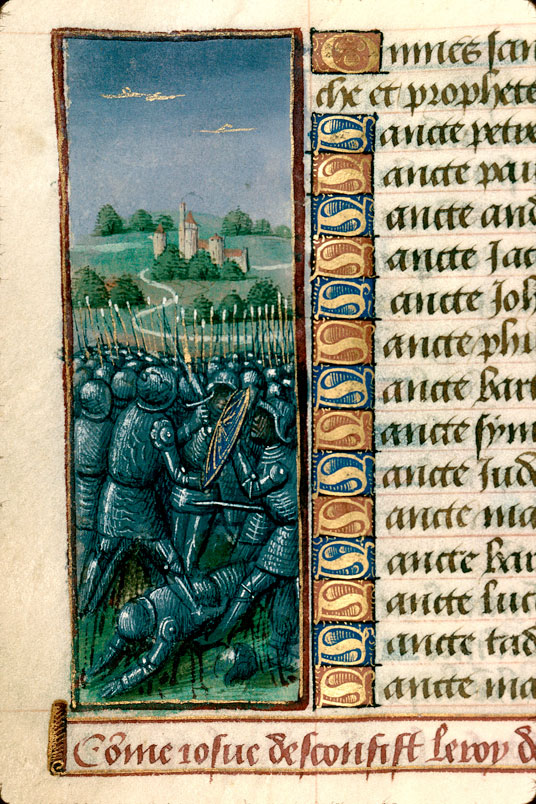 Omnes san
che et prophete
Sancte petre
Sancte pau
Sancte and
Sancte Jac
Sancte Joh
Sancte phi
Sancte bart
Sancte sym
Sancte Jud
Sancte ma
Sancte bar
Sancte luc
Sancte tad
Sancte ma
Cõme iosue desconfist le roy d